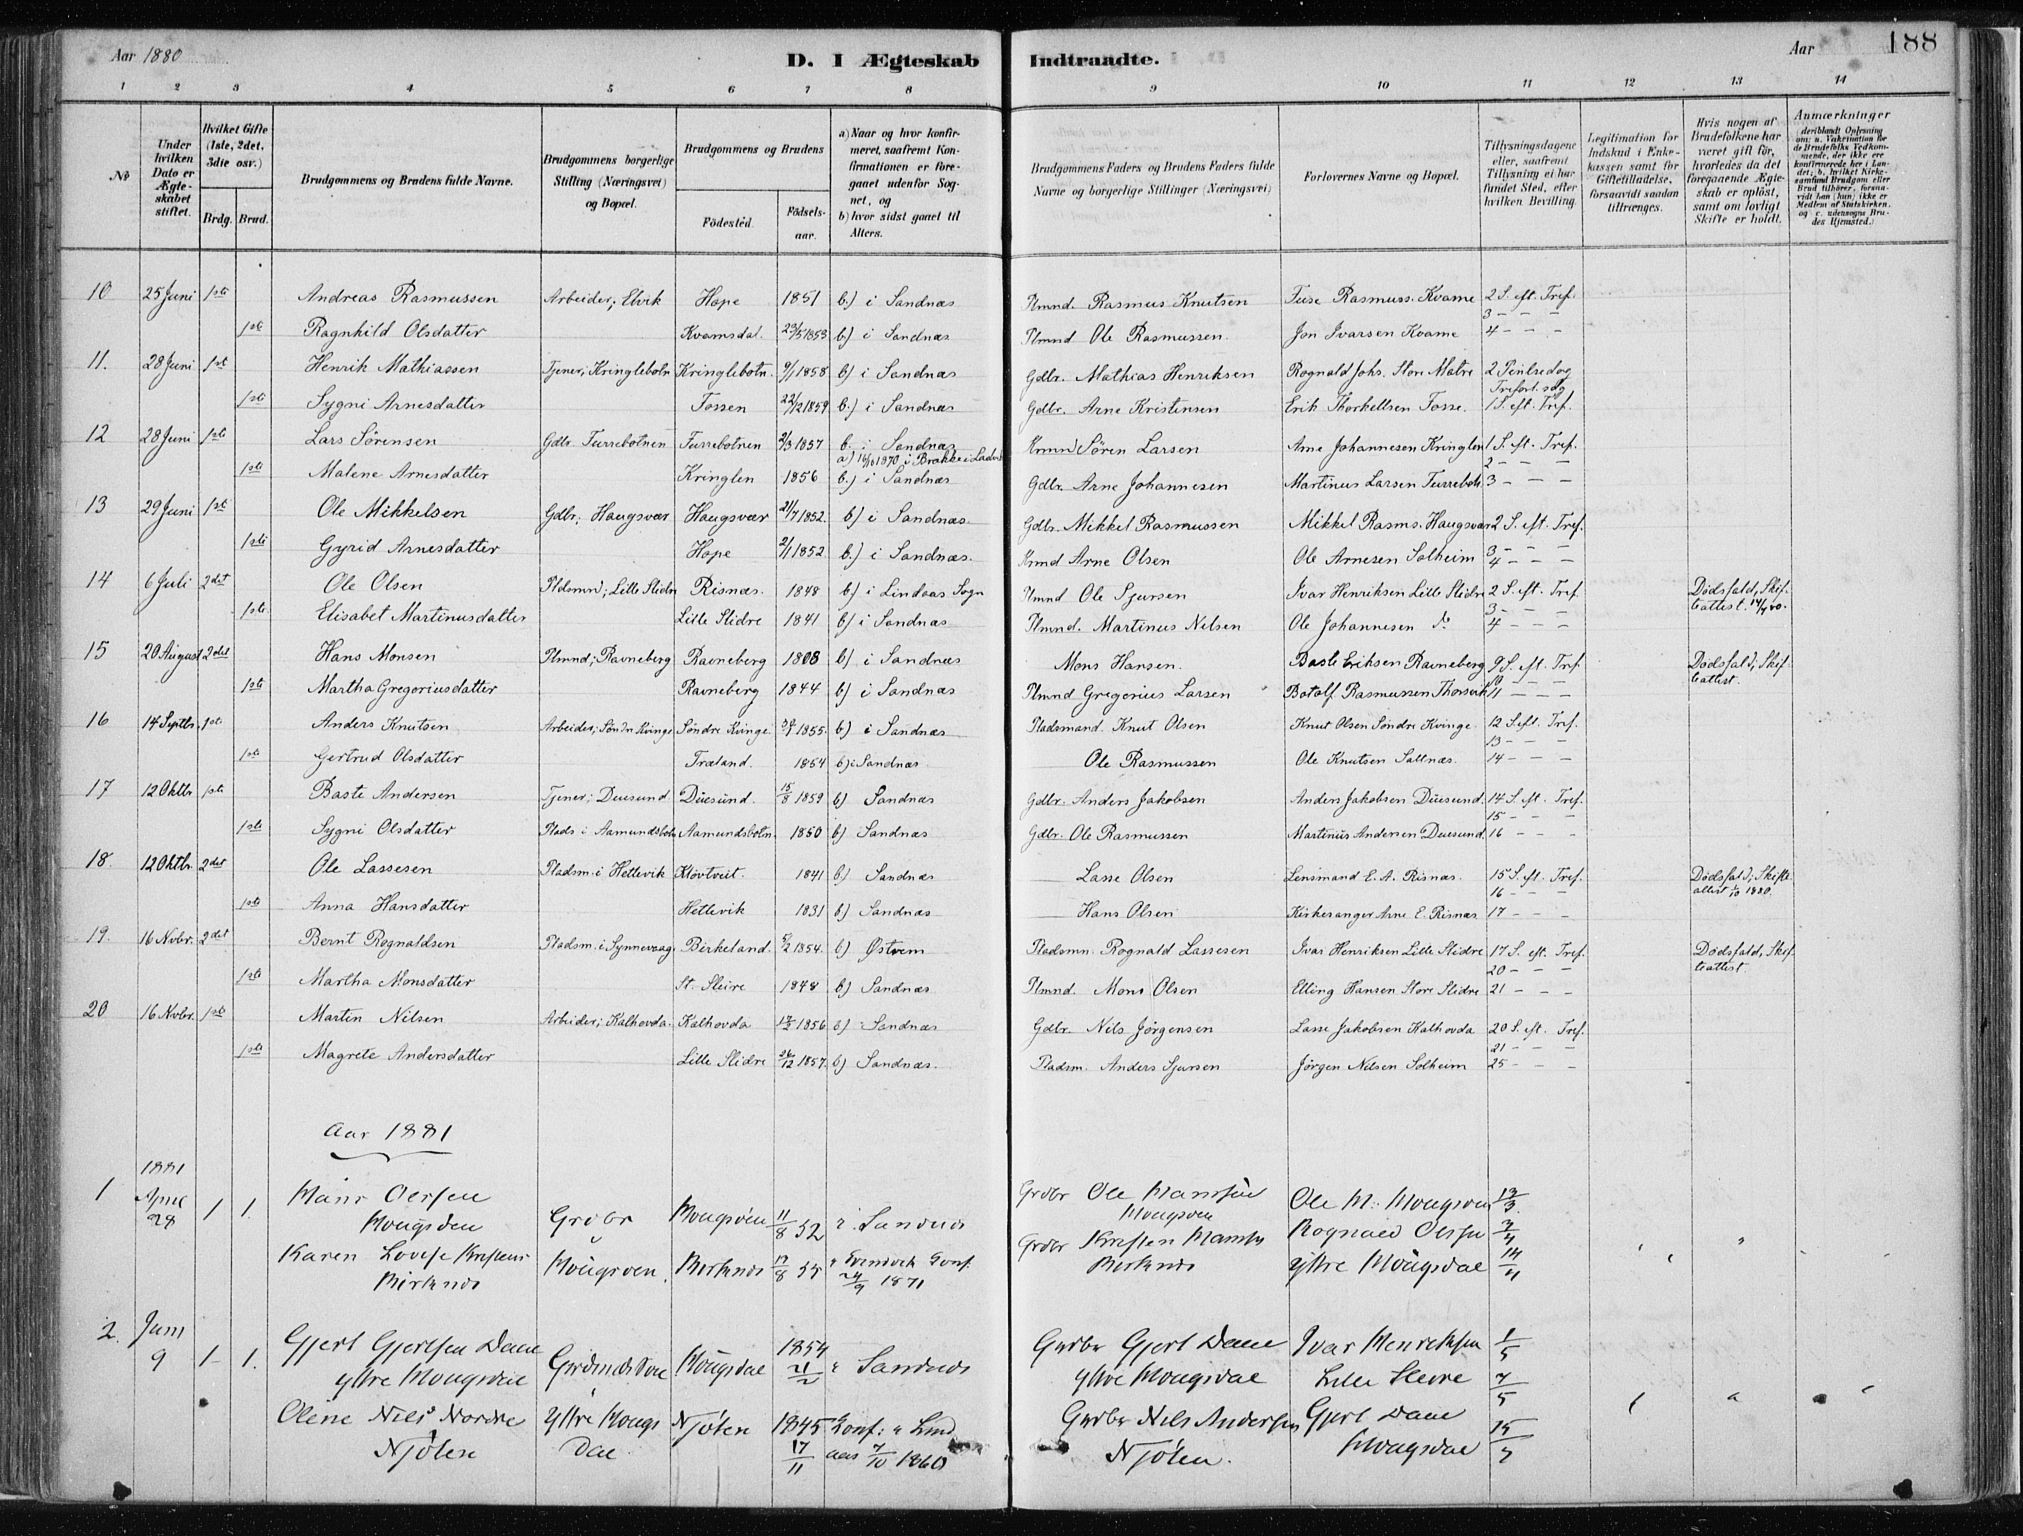 Aar 1880 D. I Ægteskab Indtraadte. Aar 188
1 2 3 4 5 6 7 8 9 10 11 12 13 14
№
Under hvilken Dato er Ægteskabet stiftet.
Hvilket Gifte (1ste, 2det, 3die osv.)
Brdg. Brud.
Brudgommens og Brudens fulde Navne.
Brudgommens borgerlige Stilling (Næringsvei) og Bopæl.
Brudgommens og Brudens
Fødested. Fødselsaar.
a) Naar og hvor konfirmeret, saafremt Konfirmationen er foregaaet udenfor Sognet, og
b) hvor sidst gaaet til Alters.
Brudgommens Faders og Brudens Faders fulde Navne og borgerlige Stillinger (Næringsvei)
Forlovernes Navne og Bopæl.
Tillysningsdagene eller, saafremt Tillysning ei har fundet Sted, efter hvilken Bevilling.
Legitimation for Indskud i Enkekassen samt for Giftetilladelse, forsaavidt saadan tiltrænges.
Hvis nogen af Brudefolkene har været gift før, hvorledes da det foregaaende Ægteskab er opløst, samt om lovligt Skifte er holdt.
Anmærkninger
10 25 Juni 1ste Andreas Rasmussen Arbeider, Elvik Hope 1851 b.) i Sandnæs Plmnd. Rasmus Knutsen Tuse Rasmuss. Kvame 2 S. eft. Tref.
3 – – –
1ste Ragnhild Olsdatter Kvamsdal. 23/5 1853 b) i Sandnæs Plmnd Ole Rasmussen. Jon Ivarsen Kvame 4 – – –
11. 28 Juni 1ste Henrik Mathiassen Tjener; Kringlebotn Kringlebotn. 9/1 1858 b) i Sandnæs Gdbr. Mathias Henriksen Rognald Johs. Store Matre 2 Pintsedag
Trefort. sdg
1ste Sygni Arnesdatter Fossen 22/12 1859 b.) i Sandnæs Gdbr. Arne Kristensen Erik Thorkellsen Fosse. 1 S. eft. Tref.
12 28 Juni 1ste Lars Sørensen Gdbr. Turrebotnen Turrebotnen 2/3 1857 b. i Sandnæs Krmnd Søren Larsen Arne Johannesen Kringlen 1 S. eft. Tref.
a) 1870 i Brække i Ladvik 2 – – –
1ste Malene Arnesdatter Kringlen 1856 b.) i Sandnæs Gdbr. Arne Johannesen Martinus Larsen Turrebotn 3 – – –
13 29 Juni 1ste Ole Mikkelsen Gdbr; Haugsvær Haugsvær 21/7 1852. b) i Sandnæs. Gdbr. Mikkel Rasmussen Mikkel Rasms. Haugsvær 2 S. eft. Tref.
3 – – –
1ste Gyrid Arnesdatter Hope 2/1 1852 b.) i Sandnæs. Krmd Arne Olsen Ole Arnesen Solheim 4 – – –
14 6 Juli 2det Ole Olsen Pldsmnd; Lille Slidre Risnæs. 1848 b) i Lindaas Sogn Plmnd Ole Sjursen Ivar Henriksen Lille Slidre 2 S. eft. Tref Dødsfald, Skif-
3 – – – teattest.
1ste Elisabet Martinusdatter Lille Slidre 1841 b) i Sandnæs Plmnd. Martinus Nilsen Ole Johannesen do 4 – – –
15 20 August 2det Hans Monsen Plmnd; Ravneberg Ravneberg 1808 b) i Sandnæs Mons Hansen. Baste Eriksen Ravneberg 9 S. eft. Tref. Dødsfald, Skif-
10 – – – teattest.
1ste Martha Gregoriusdatter Ravneberg 1844 b) i Sandnæs Plmnd Gregorius Larsen Botolf Rasmussen Thorsvik 11 – – –
16 14 Septbr. 1ste Anders Knutsen Arbeider; Søndre Kvinge Søndre Kvinge. 1855. b) i Sandnæs Pladsmand. Knut Olsen Knut Olsen Søndre Kvinge 12 S. eft. Tref.
13 – – –
1ste Gertrud Olsdatter Træland. 1854 b) i Sandnæs. Ole Rasmussen Ole Knutsen Saltnæs. 14 – – –
17 12 Oktbr 1ste Baste Andersen Tjener; Duesund Duesund. 15/8 1859 b) Sandnæs Gdbr. Anders Jakobsen Anders Jakobsen Duesund. 14 S. eft. Tref.
15 – – –
1ste Sygni Olsdatter Plads i Aamundsbotn Aamundsbotn. 1850 b) Sandnæs Gdbr. Ole Rasmussen Martinus Andersen Duesund. 16 – – –
18. 12 Oktbr. 2det Ole Lassesen Pladsm. i Hettevik Kløvtveit. 1841 b) Sandnæs Lasse Olsen Lensmand E. A. Risnæs. 15 S. eft. Tref. Dødsfald; Skifte-
16 – – – attest 1880.
1ste Anna Hansdatter Hettevik 1831 b) Sandnæs Hans Olsen Kirkesanger Arne E. Risnæs 17 – – –
19. 16 Novbr. 2det Bernt Rognaldsen Pladsm. i Synnevaag Birkeland. 5/2 1854. b) Østrem Pladsmn. Rognald Lassesen Ivar Henriksen Lille Slidre 17 S. eft. Tref. Dødsfald, Skif-
20 – – – teattest.
1ste Martha Monsdatter St. Sleire 1848 b) Sandnæs Plmnd. Mons Olsen Elling Hansen Store Slidre 21 – – –
20 16 Novbr. 1ste Martin Nilsen Arbeider; Kalhovda. Kalhovda 1856 b) Sandnæs Gdbr. Nils Jørgensen Lasse Jakobsen Kalhovda 20 S. eft. Tref.
21 – – –
1ste Magrete Andersdatter Lille Slidre 26/12 1857. b) Sandnæs. Pladsm. Anders Sjursen Jørgen Nilsen Solheim 25 – – –
Aar 1881
1881
1 April 28 1 1. Hans Olesen Grdbr 11/8 52 i Sandnes Grdbr Ole Ole M.
Karen Lovise 55 1871 Grdbr Rognald Olsen 14
2. Juni 9 1 1. Gjert Gjertsen Dale 1854 Sandnes Grdbr Gjert Dale Ivar Henriksen
ytre Mougsdal Mougsdal 21/2 ytre Mougsdal Lille Sleire
Oline Nils Nordre Ytre Mougs Njøten 1845 Conf: i Lind Grdbr Nils Andersen Gjert Dale 15
Njøten dal 17/11 aas 7/10 1860 Njøten. Mougsdal